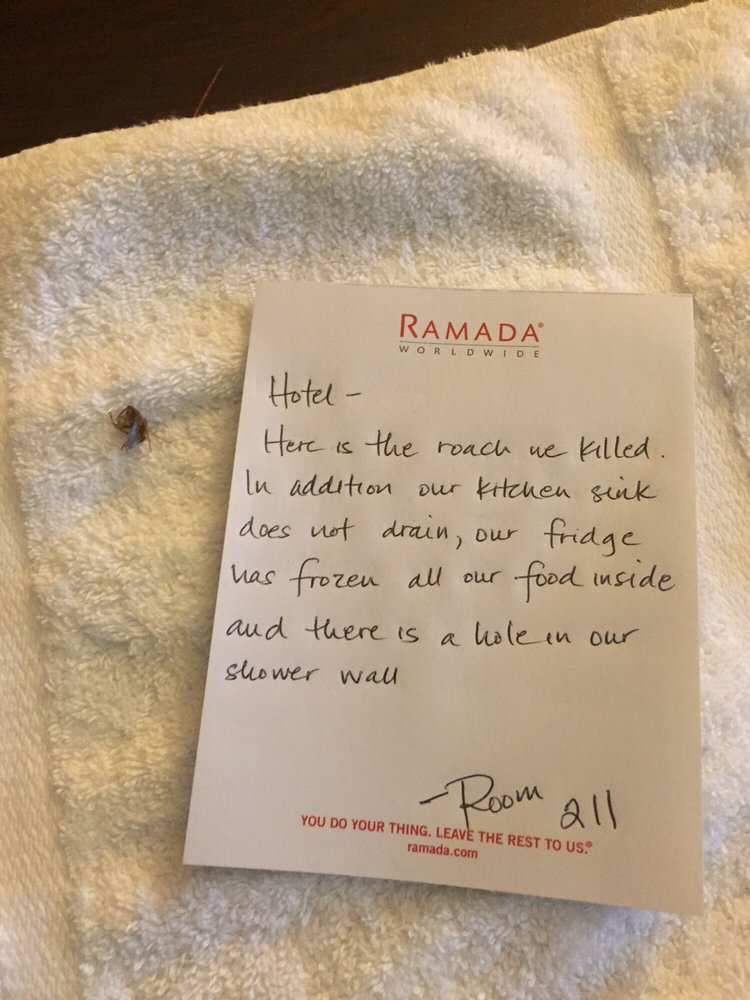 RAMADA®
WORLDWIDE
Hotel -
Here is the roach we killed.
In addition our kitchen sink
does not drain, our fridge
has frozen all our food inside
and there is a hole in our
shower wall
- Room 211
YOU DO YOUR THING. LEAVE THE REST TO US.®
ramada.com